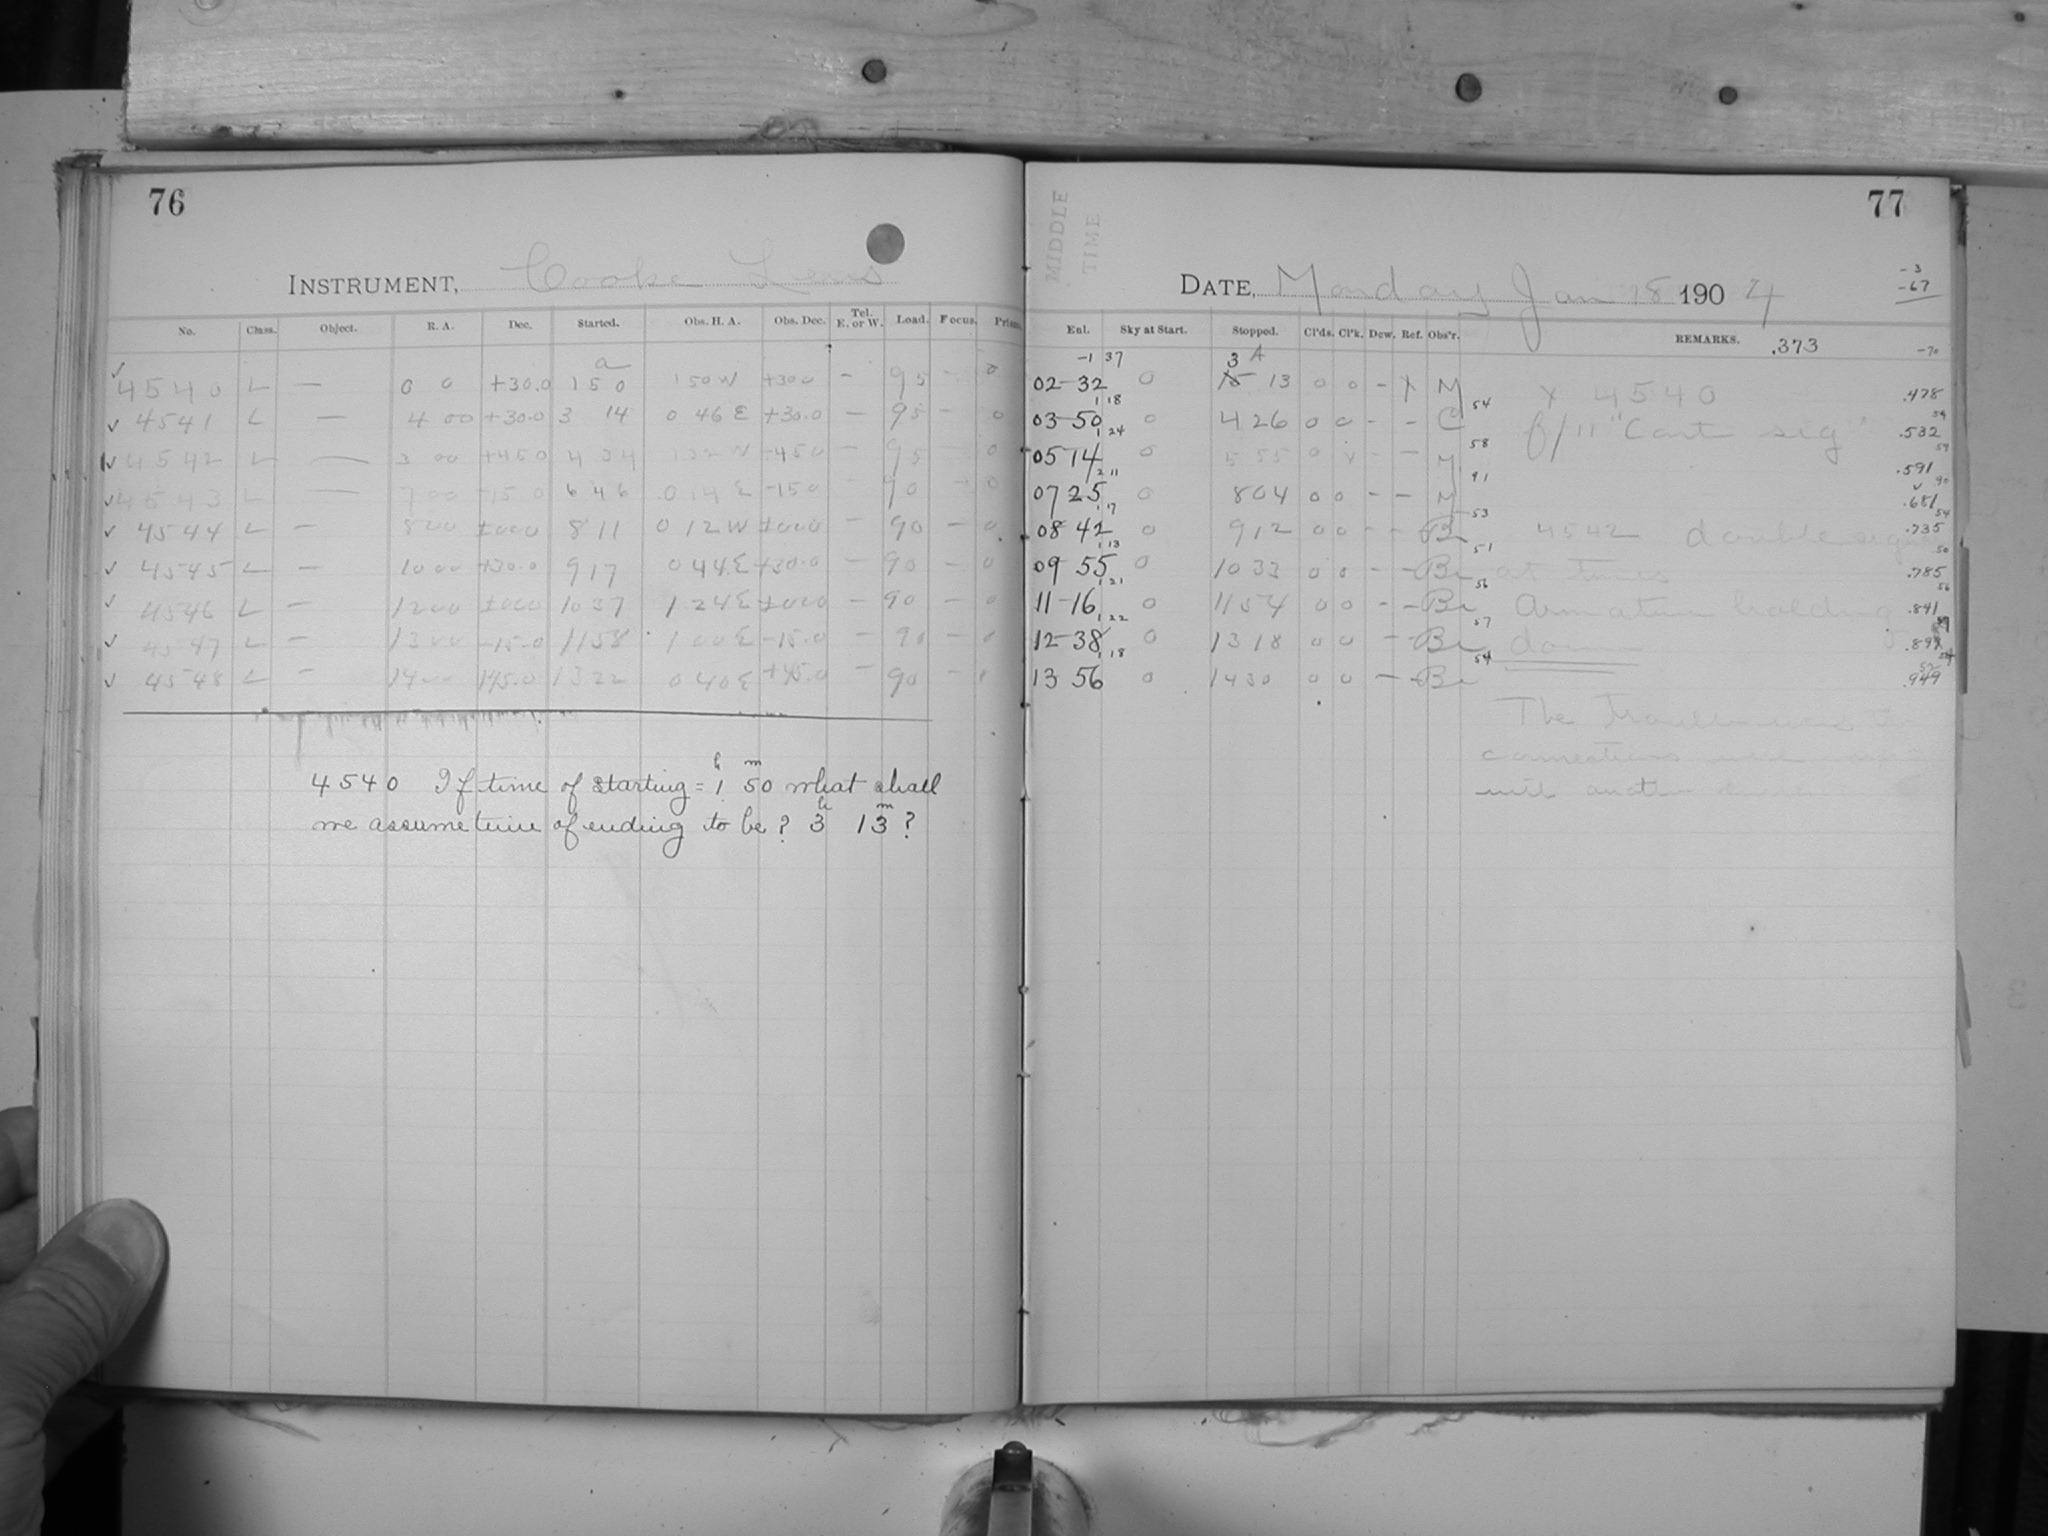 76
INSTRUMENT, Cooke Lens
No. Class. Object. R. A. Dec. Started. Obs. H. A. Obs. Dec. Tel. E. or W. Load. Focus. Prism.
a
✓ 4540 L — 0 0 +30.0 1 50 1 50 W +30.0 — 95 - 0
✓ 4541 L — 4 00 +30.0 3 14 0 46 E +30.0 — 95 - 0
4542 L — 3 00 +45.0 4 34 1 32 W +45.0 — 95 - 0
✓ 4543 L — 7 00 -15.0 6 46 0 14 E -15.0 — 90 - 0
✓ 4544 L — 8 00 ±00.0 8 11 0 12 W ±00.0 — 90 - 0
✓ 4545 L — 10 00 +30.0 9 17 0 44 E +30.0 — 90 - 0
✓ 4546 L — 12 00 ±00.0 10 37 1 24 E ±00.0 — 90 - 0
✓ 4547 L — 13 00 -15.0 11 58 1 00 E -15.0 — 90 - 0
✓ 4548 L — 14 00 +45.0 13 22 0 40 E +45.0 — 90 -
4540 If time of starting = 1h 50m what shall
we assume time of ending to be? 3h 13m?
77
MIDDLE
TIME
DATE, Monday Jan 18 1904
-3
-67
Enl. Sky at Start. Stopped. Cl'ds. Cl'k. Dew. Ref. Obs'r. REMARKS. .373
-1 37 3 A -70
02-32 0 15 13 0 0 - X M X 4540 .478
1 18 54 54
03-50 0 4 26 0 0 - - C f/11 "Cant sig" .532
1 24 58 59
05 14 0 5 55 0 x - - M .591
2 11 91 90
07 25 0 8 04 0 0 - - M .681
1 17 53 54
08 42 0 9 12 0 0 - - Be 4542 double sig .735
1 13 51 50
09 55 0 10 33 0 0 - - Be at times .785
1 21 56 56
11-16 0 11 54 0 0 - - Be Armature holding .841
1 22 57
12-38 0 13 18 0 0 - - Be down
1 18 54
13 56 0 14 30 0 0 - - Be .949
The
connections were
with another